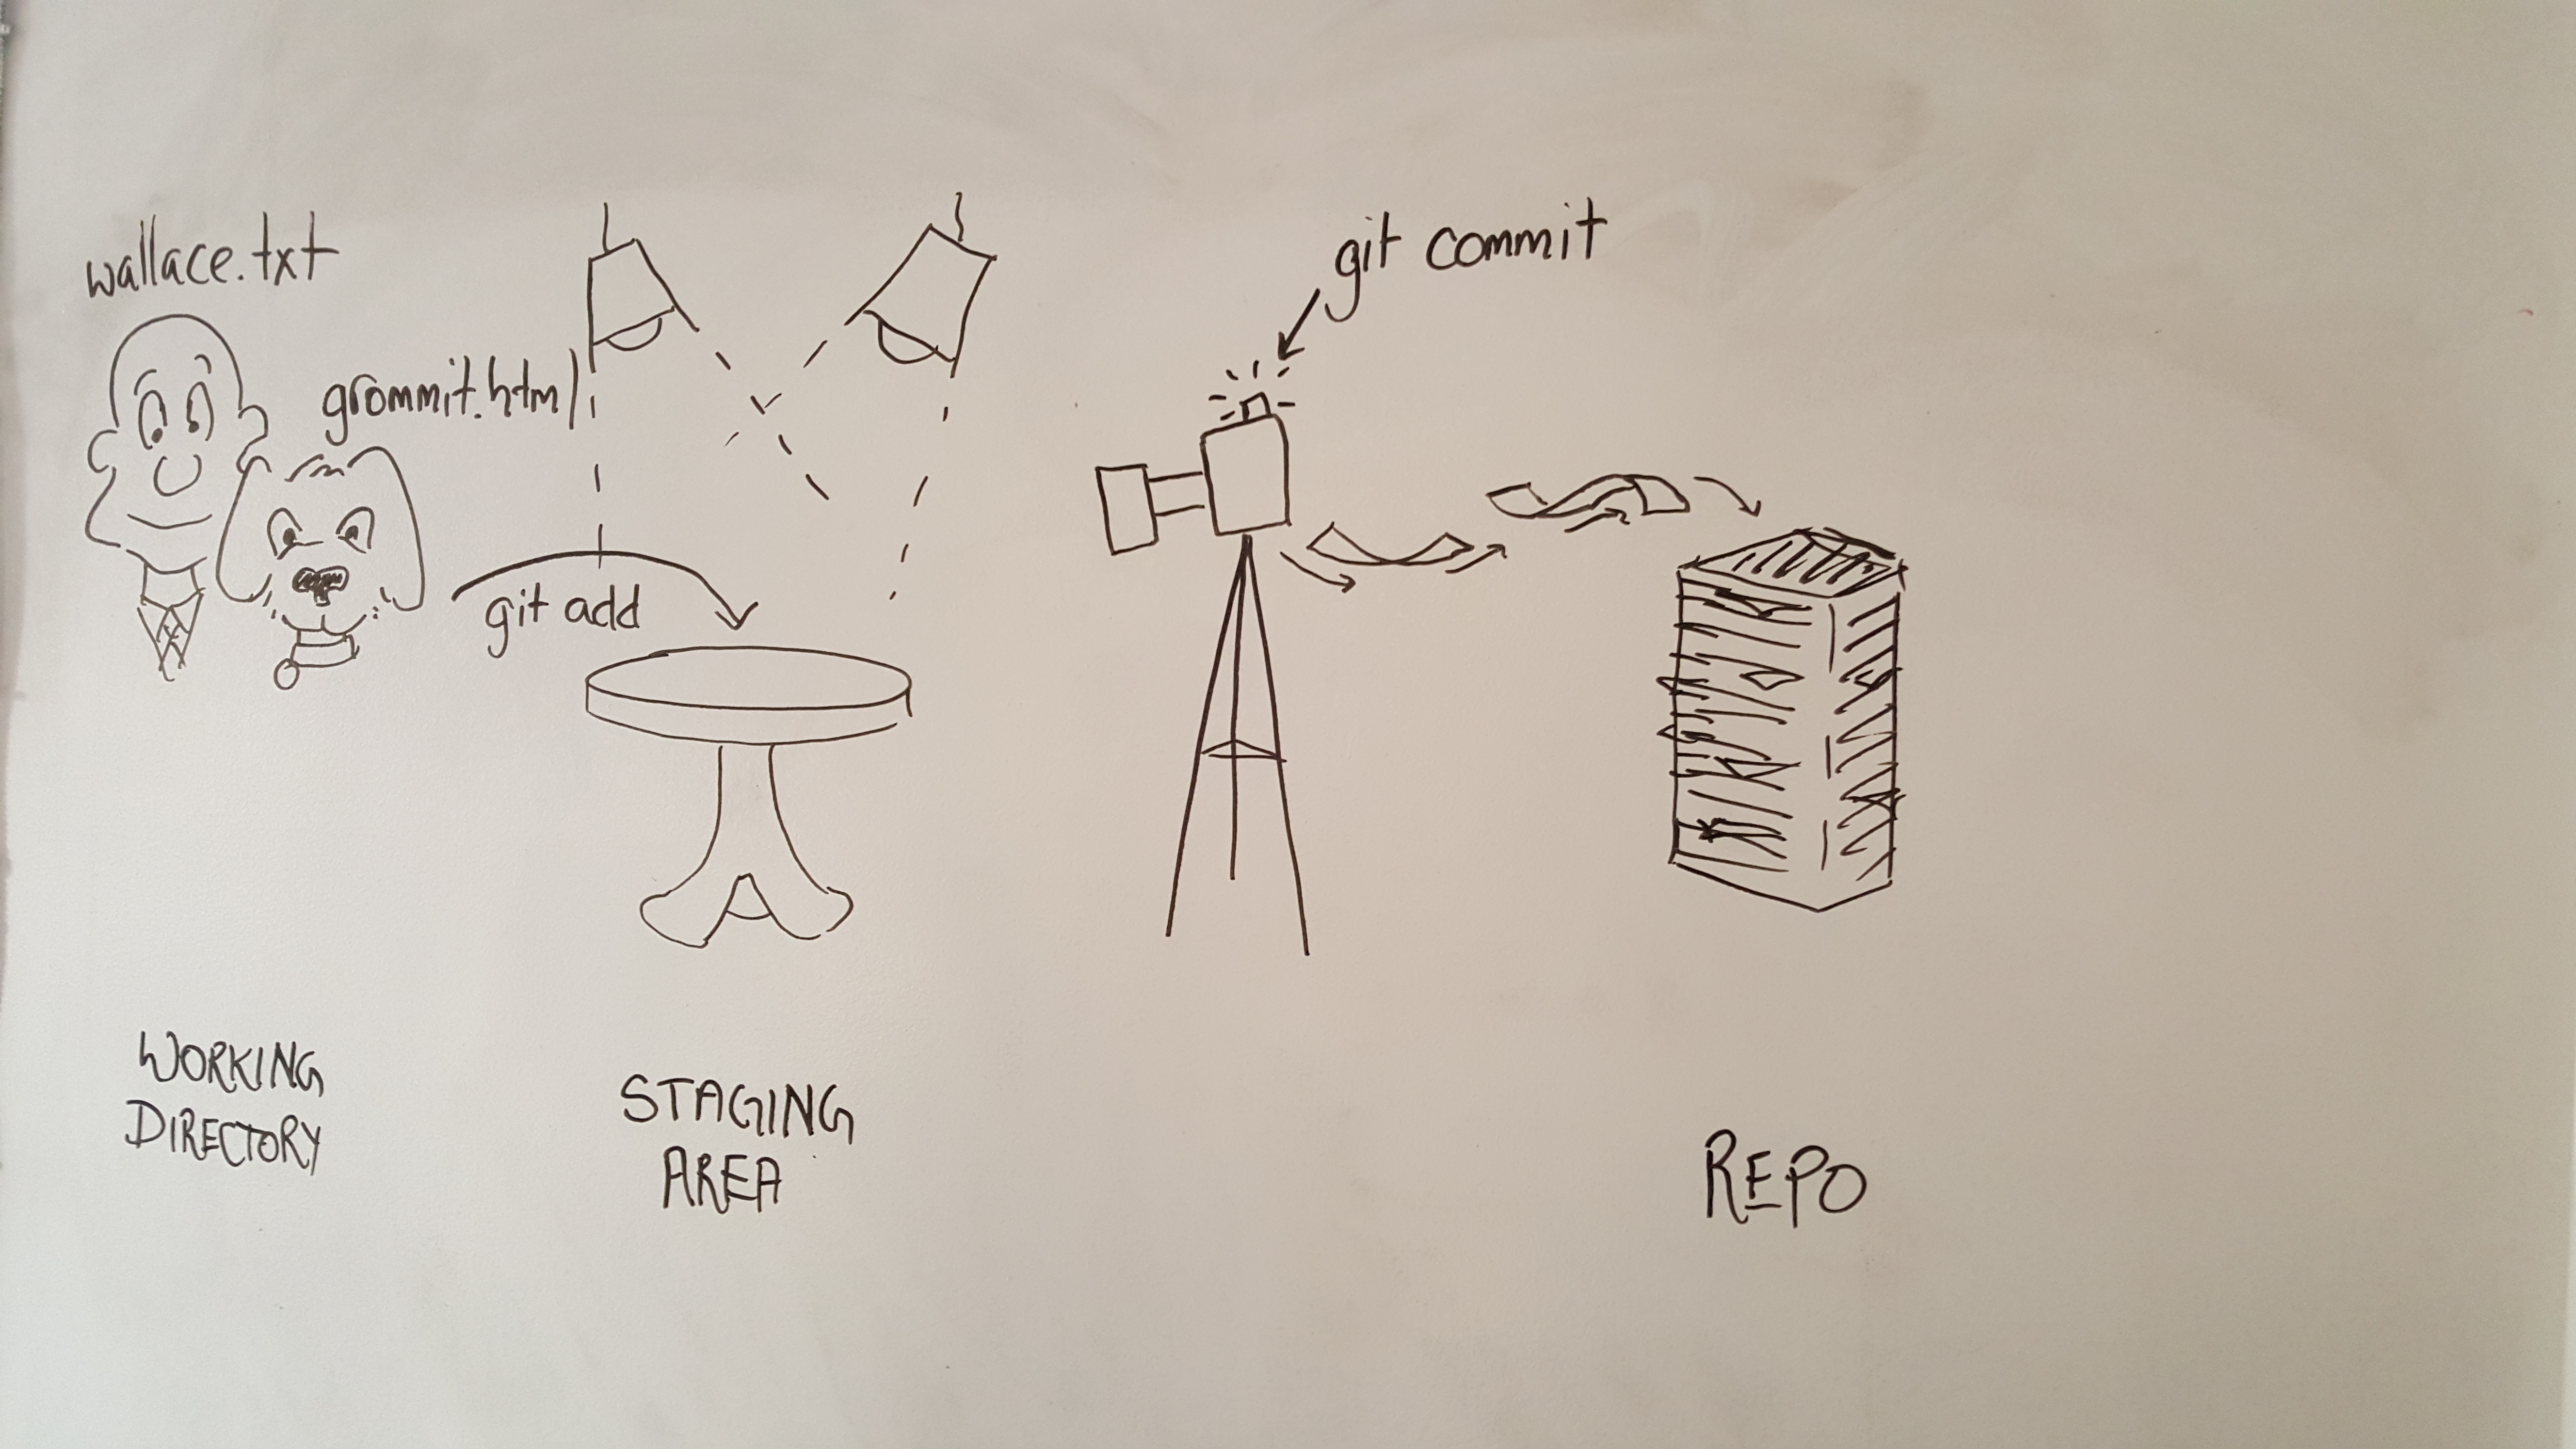 wallace.txt
grommit.html
git add
git commit
WORKING
DIRECTORY
STAGING
AREA
REPO